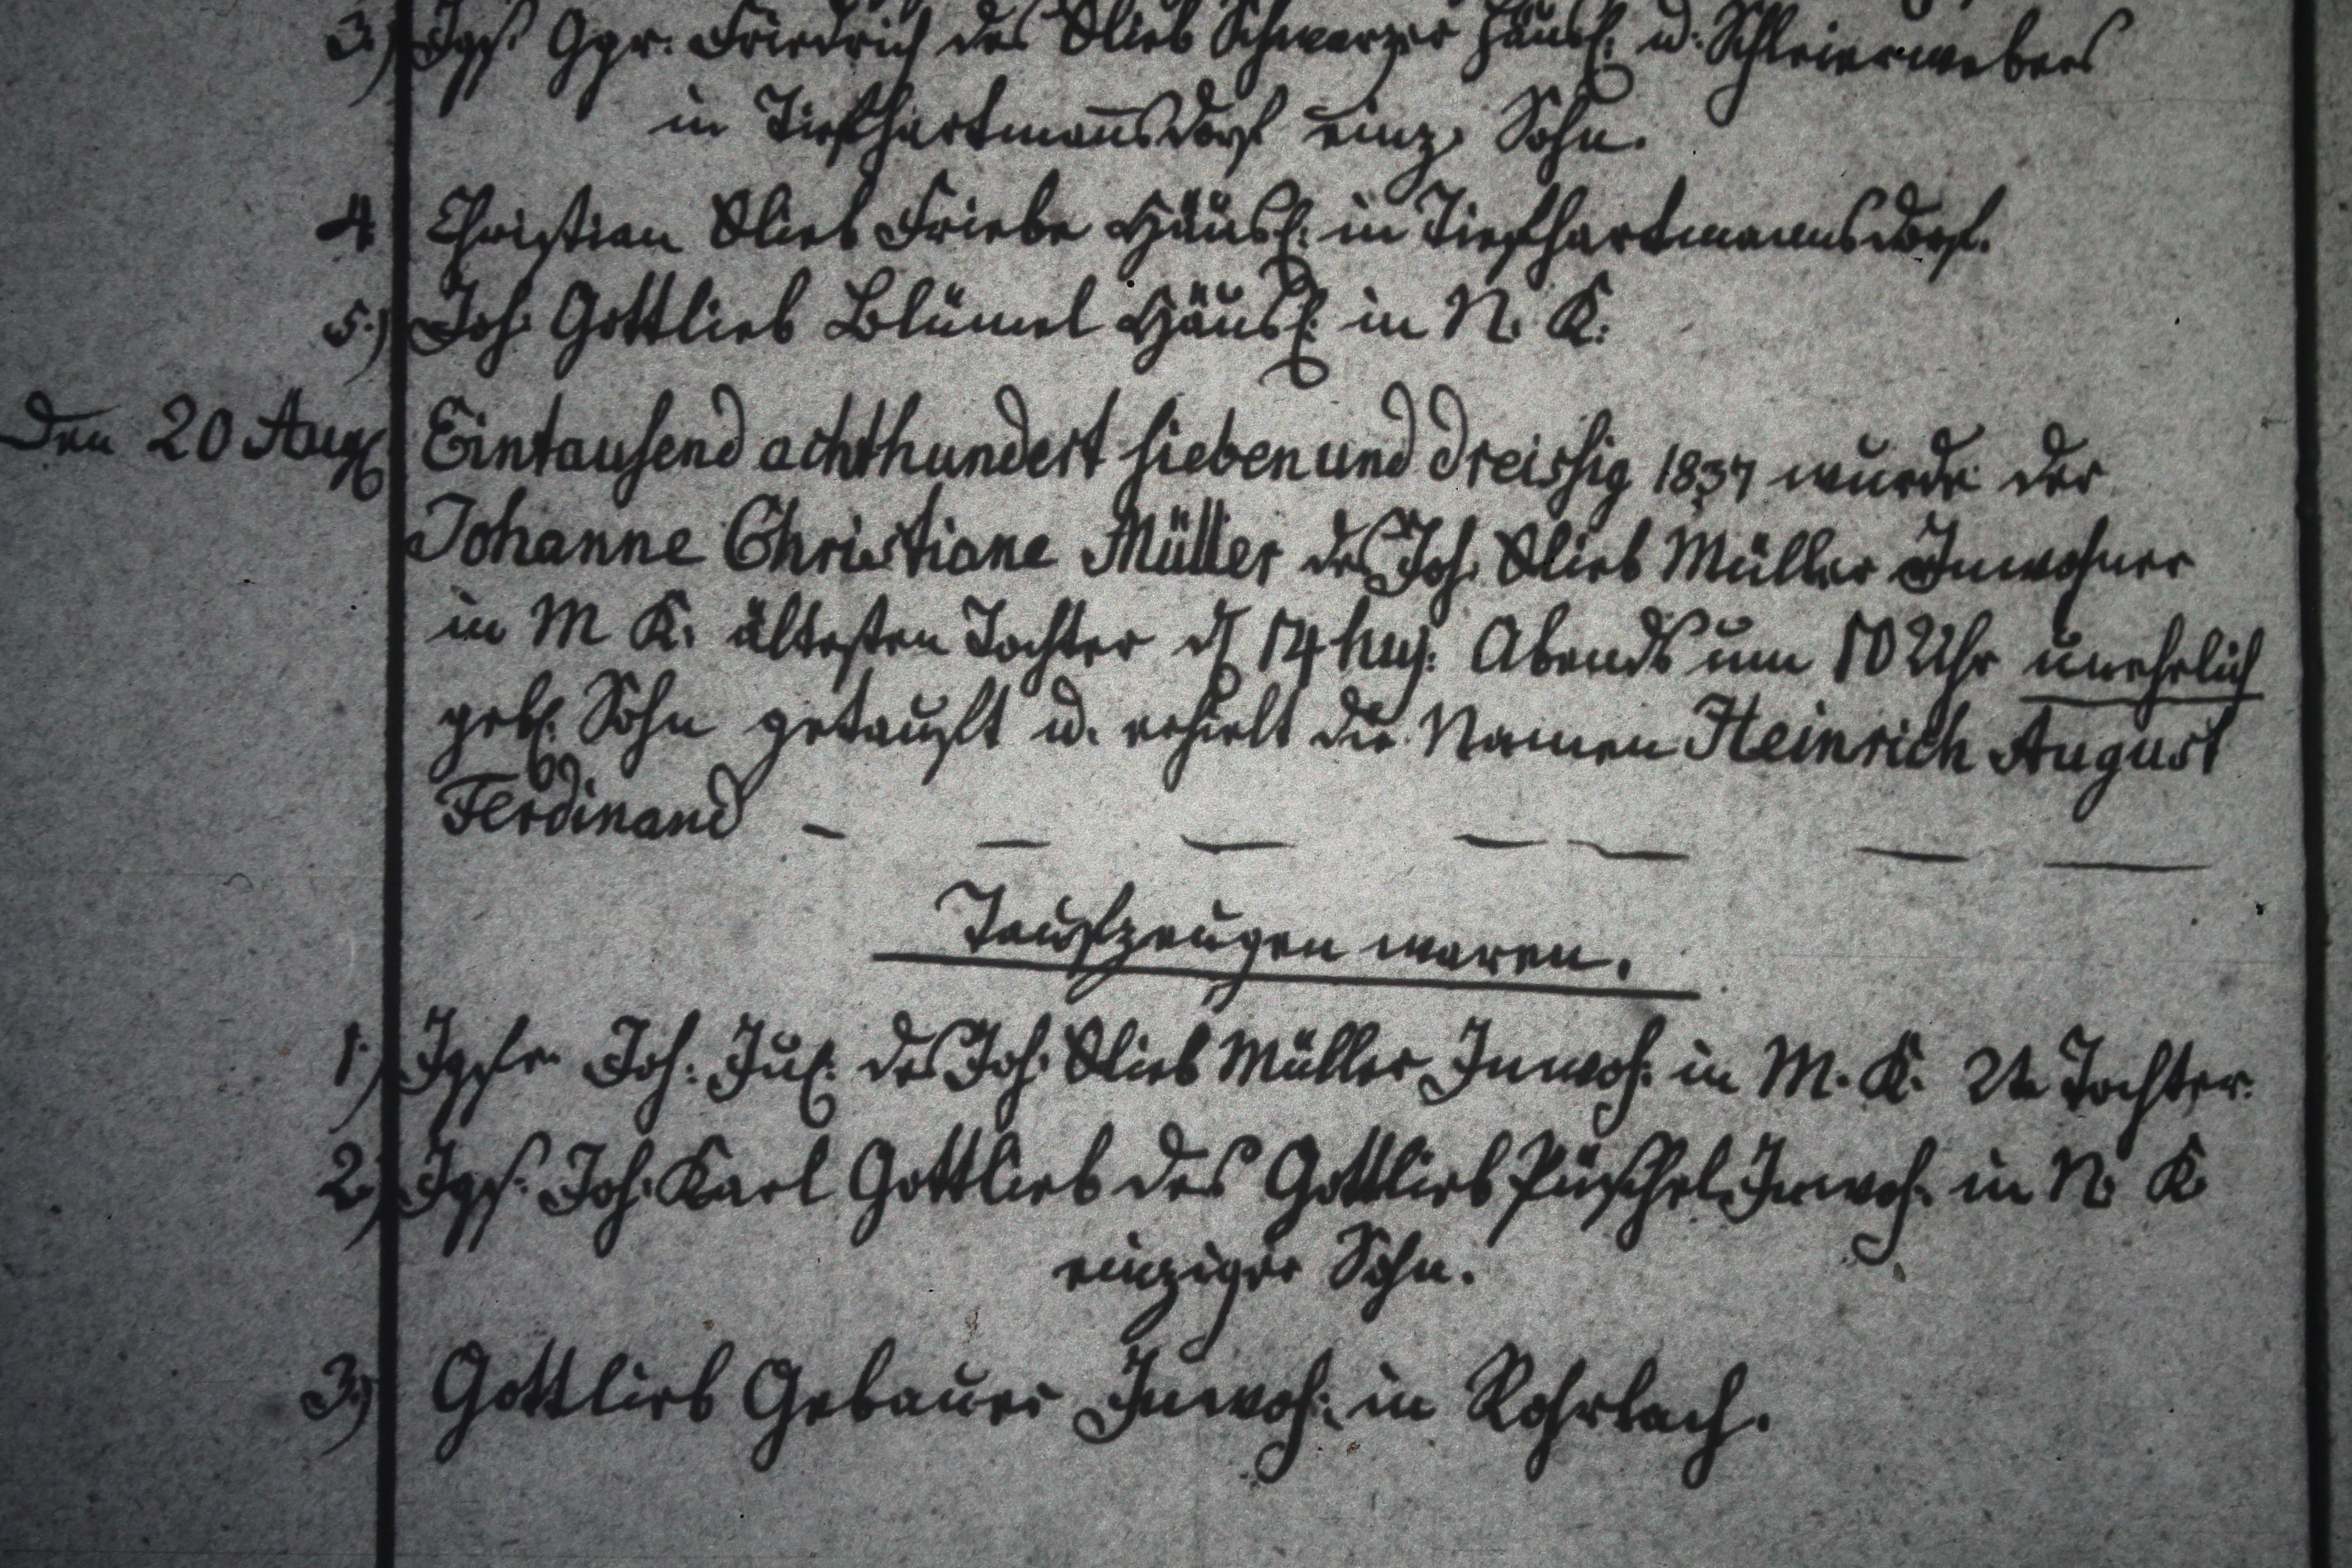 3.) Jgs. Ggr. Friedrich des Glieb Schwarzer Häusl. u. Schleierwebers
in Tiefhartmansdorf einz. Sohn.
4. Christian Glieb Friebe Häusl. in Tiefhartmannsdorf.
5.) Joh. Gottlieb Blümel Häusl. in N. K.
Den 20 Aug. Eintausend achthundert sieben und dreissig 1837 wurde der
Johanne Christiane Müller des Joh. Glieb Müller Inwohner
in M K. ältesten Tochter d. 14 huj. Abends um 10 Uhr unehrlich
geb. Sohn getauft u. erhielt die Namen Heinrich August
Ferdinand — — — — — — —
Taufzeugen waren.
1.) Jgfr. Joh. Jul. des Joh. Glieb Müller Inwoh. in M. K. 2te Tochter.
2.) Jgs. Joh. Karl Gottlieb des Gottlieb Püschel Inwoh. in N. K.
einziger Sohn.
3.) Gottlieb Gebauer Inwoh. in Rohrlach.